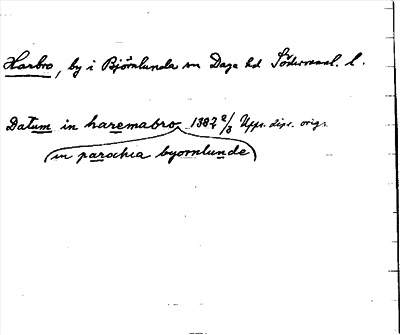 Harbro, by i Björnlunda sn Daga hd Södermanl. l.
Datum in haremabro 1382 2/3 Upps. dipl. orig.
(in parochia byornlunde)